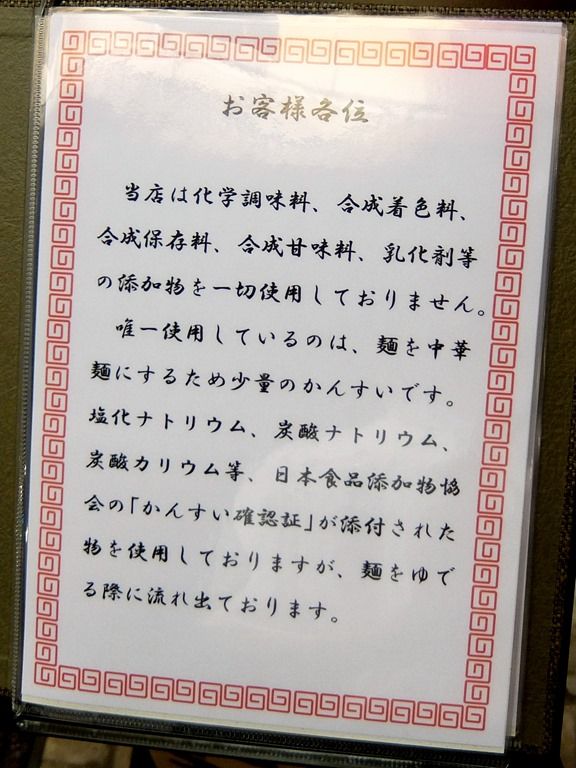 お客様各位
当店は化学調味料、合成着色料、
合成保存料、合成甘味料、乳化剤等
の添加物を一切使用しておりません。
唯一使用しているのは、麺を中華
麺にするため少量のかんすいです。
塩化ナトリウム、炭酸ナトリウム、
炭酸カリウム等、日本食品添加物協
会の「かんすい確認証」が添付された
物を使用しておりますが、麺をゆで
る際に流れ出ております。